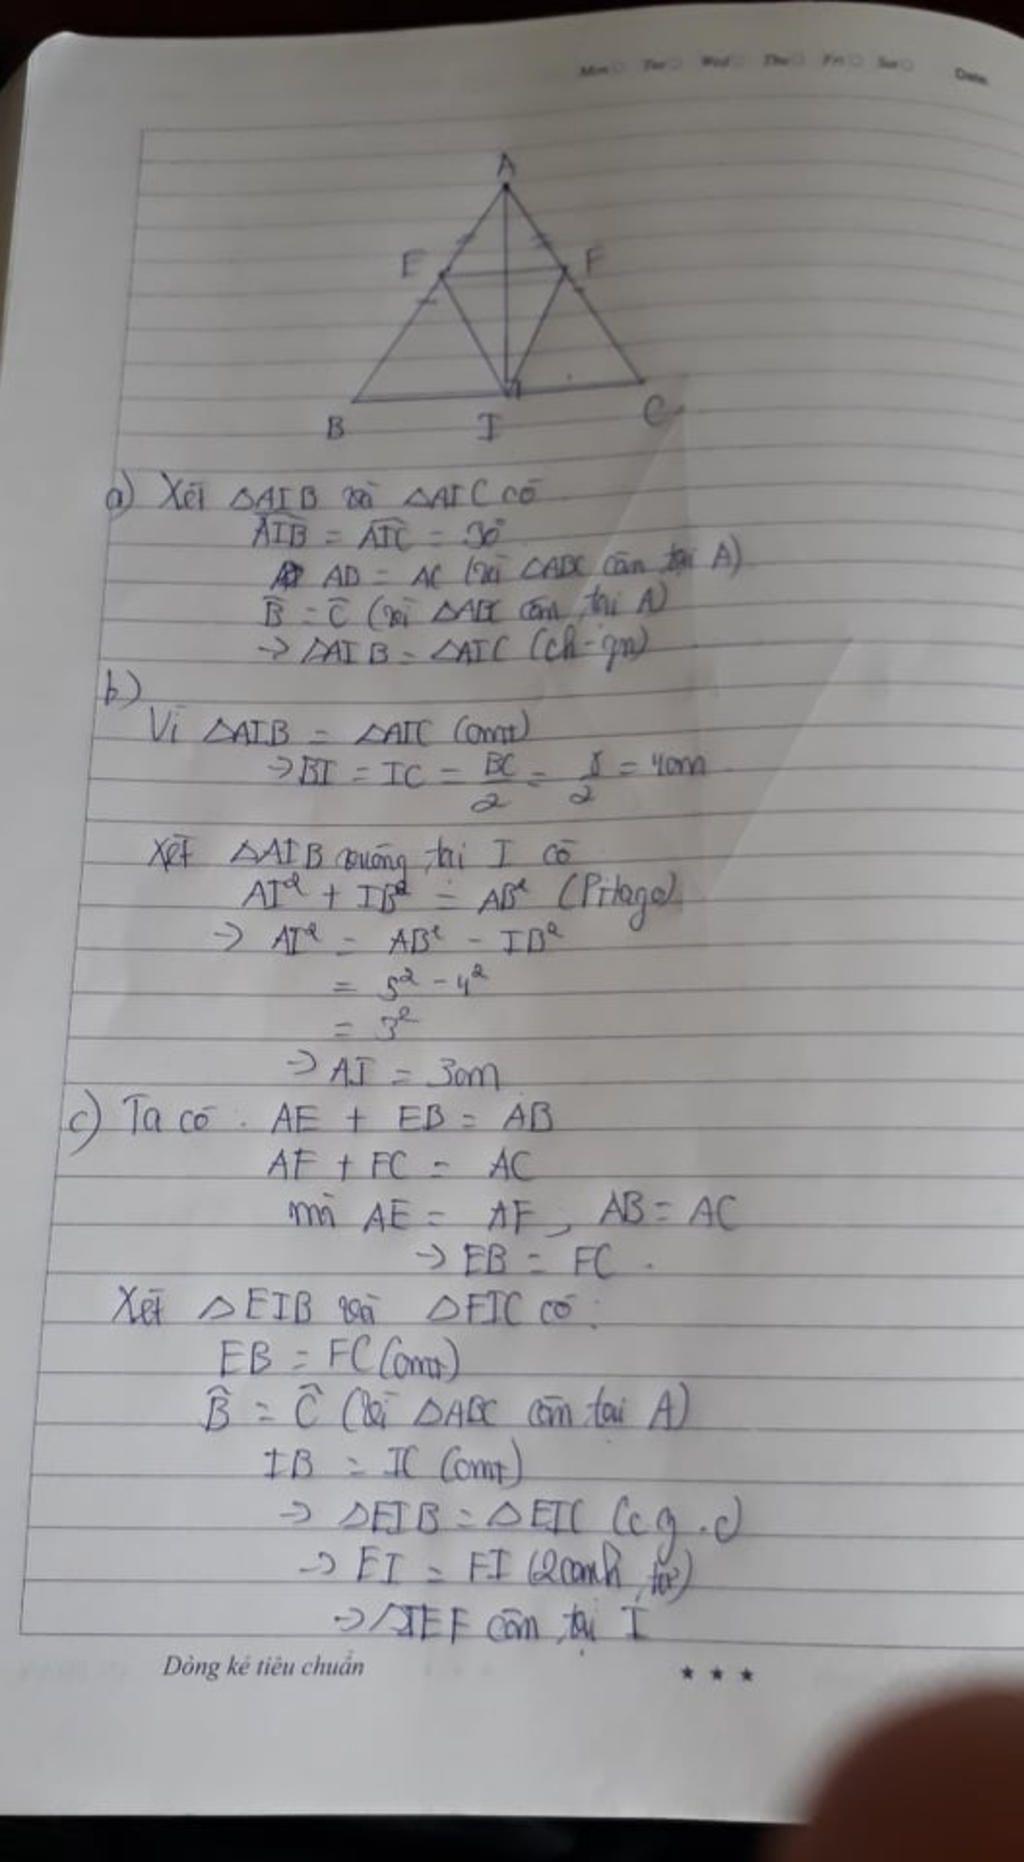 Mon Tue Wed Thu Fri Sat Date
A
E F
B I C
a) Xét △AIB và △AIC có
AIB = AIC = 90°
AB = AC (vì △ABC cân tại A)
B̂ = Ĉ (vì △ABC cân tại A)
→ △AIB = △AIC (ch-gn)
b)
Vì △AIB = △AIC (cmt)
→ BI = IC = BC/2 = 8/2 = 4cm
Xét △AIB vuông tại I có
AI² + IB² = AB² (Pitago)
→ AI² = AB² - IB²
= 5² - 4²
= 3²
→ AI = 3cm
c) Ta có. AE + EB = AB
AF + FC = AC
mà AE = AF, AB = AC
→ EB = FC.
Xét △EIB và △FIC có:
EB = FC (cmt)
B̂ = Ĉ (vì △ABC cân tại A)
IB = IC (cmt)
→ △EIB = △FIC (c.g.c)
→ EI = FI (2 cạnh tư)
→ △IEF cân tại I
Dòng kẻ tiêu chuẩn ★ ★ ★